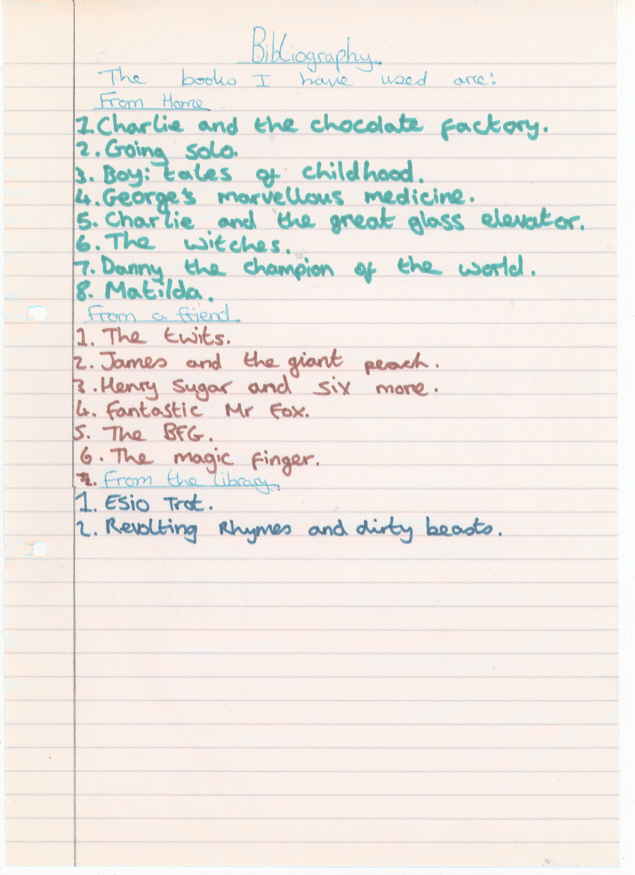 Bibliography.
The books I have used are:
From Home
1. Charlie and the chocolate factory.
2. Going solo.
3. Boy: tales of childhood.
4. George's marvellous medicine.
5. Charlie and the great glass elevator.
6. The witches.
7. Danny the champion of the world.
8. Matilda.
From a friend.
1. The twits.
2. James and the giant peach.
3. Henry Sugar and six more.
4. Fantastic Mr Fox.
5. The BFG.
6. The magic finger.
From the library.
1. Esio Trot.
2. Revolting Rhymes and dirty beasts.